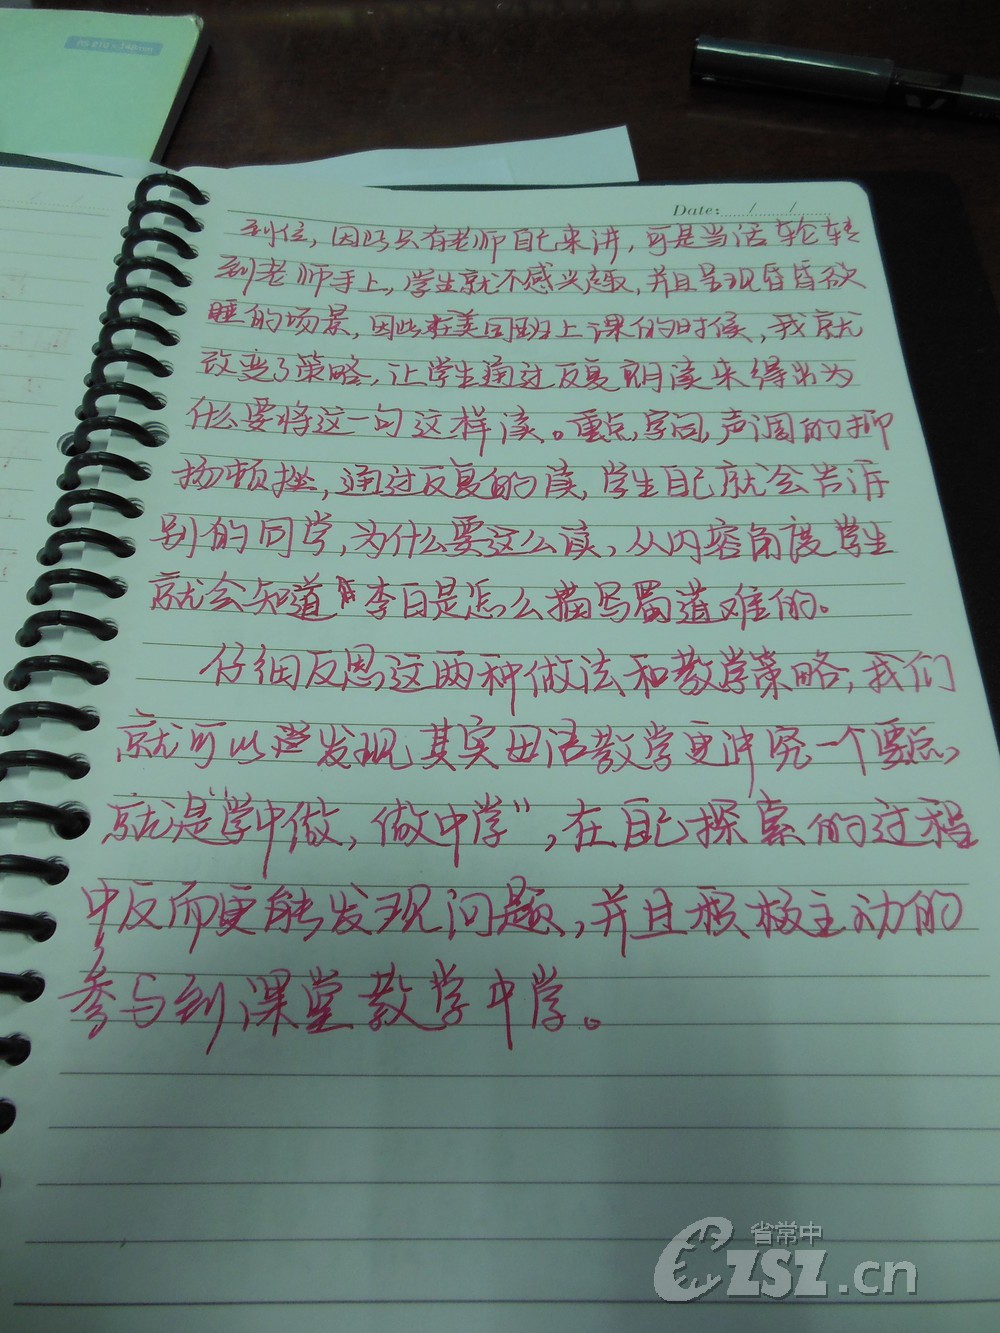 MG 810 × 248mm
Date: / /
到位，因此只有老师自己来讲，可是当活轮转
到老师手上，学生就不感兴趣，并且呈现昏昏欲
睡的场景，因此在美国班上课的时候，我就
改变了策略，让学生通过反复朗读来得出为
什么要将这一句这样读。重点字词，声调的抑
扬顿挫，通过反复的读，学生自己就会告诉
别的同学，为什么要这么读，从内容角度学生
就会知道李白是怎么描写蜀道难的。
仔细反思这两种做法和教学策略，我们
就可以发现其实 教学更讲究一个要点，
就是“学中做，做中学”，在自己探索的过程
中反而更能发现问题，并且积极主动的
参与到课堂教学中学。
省常中
CZSZ.cn